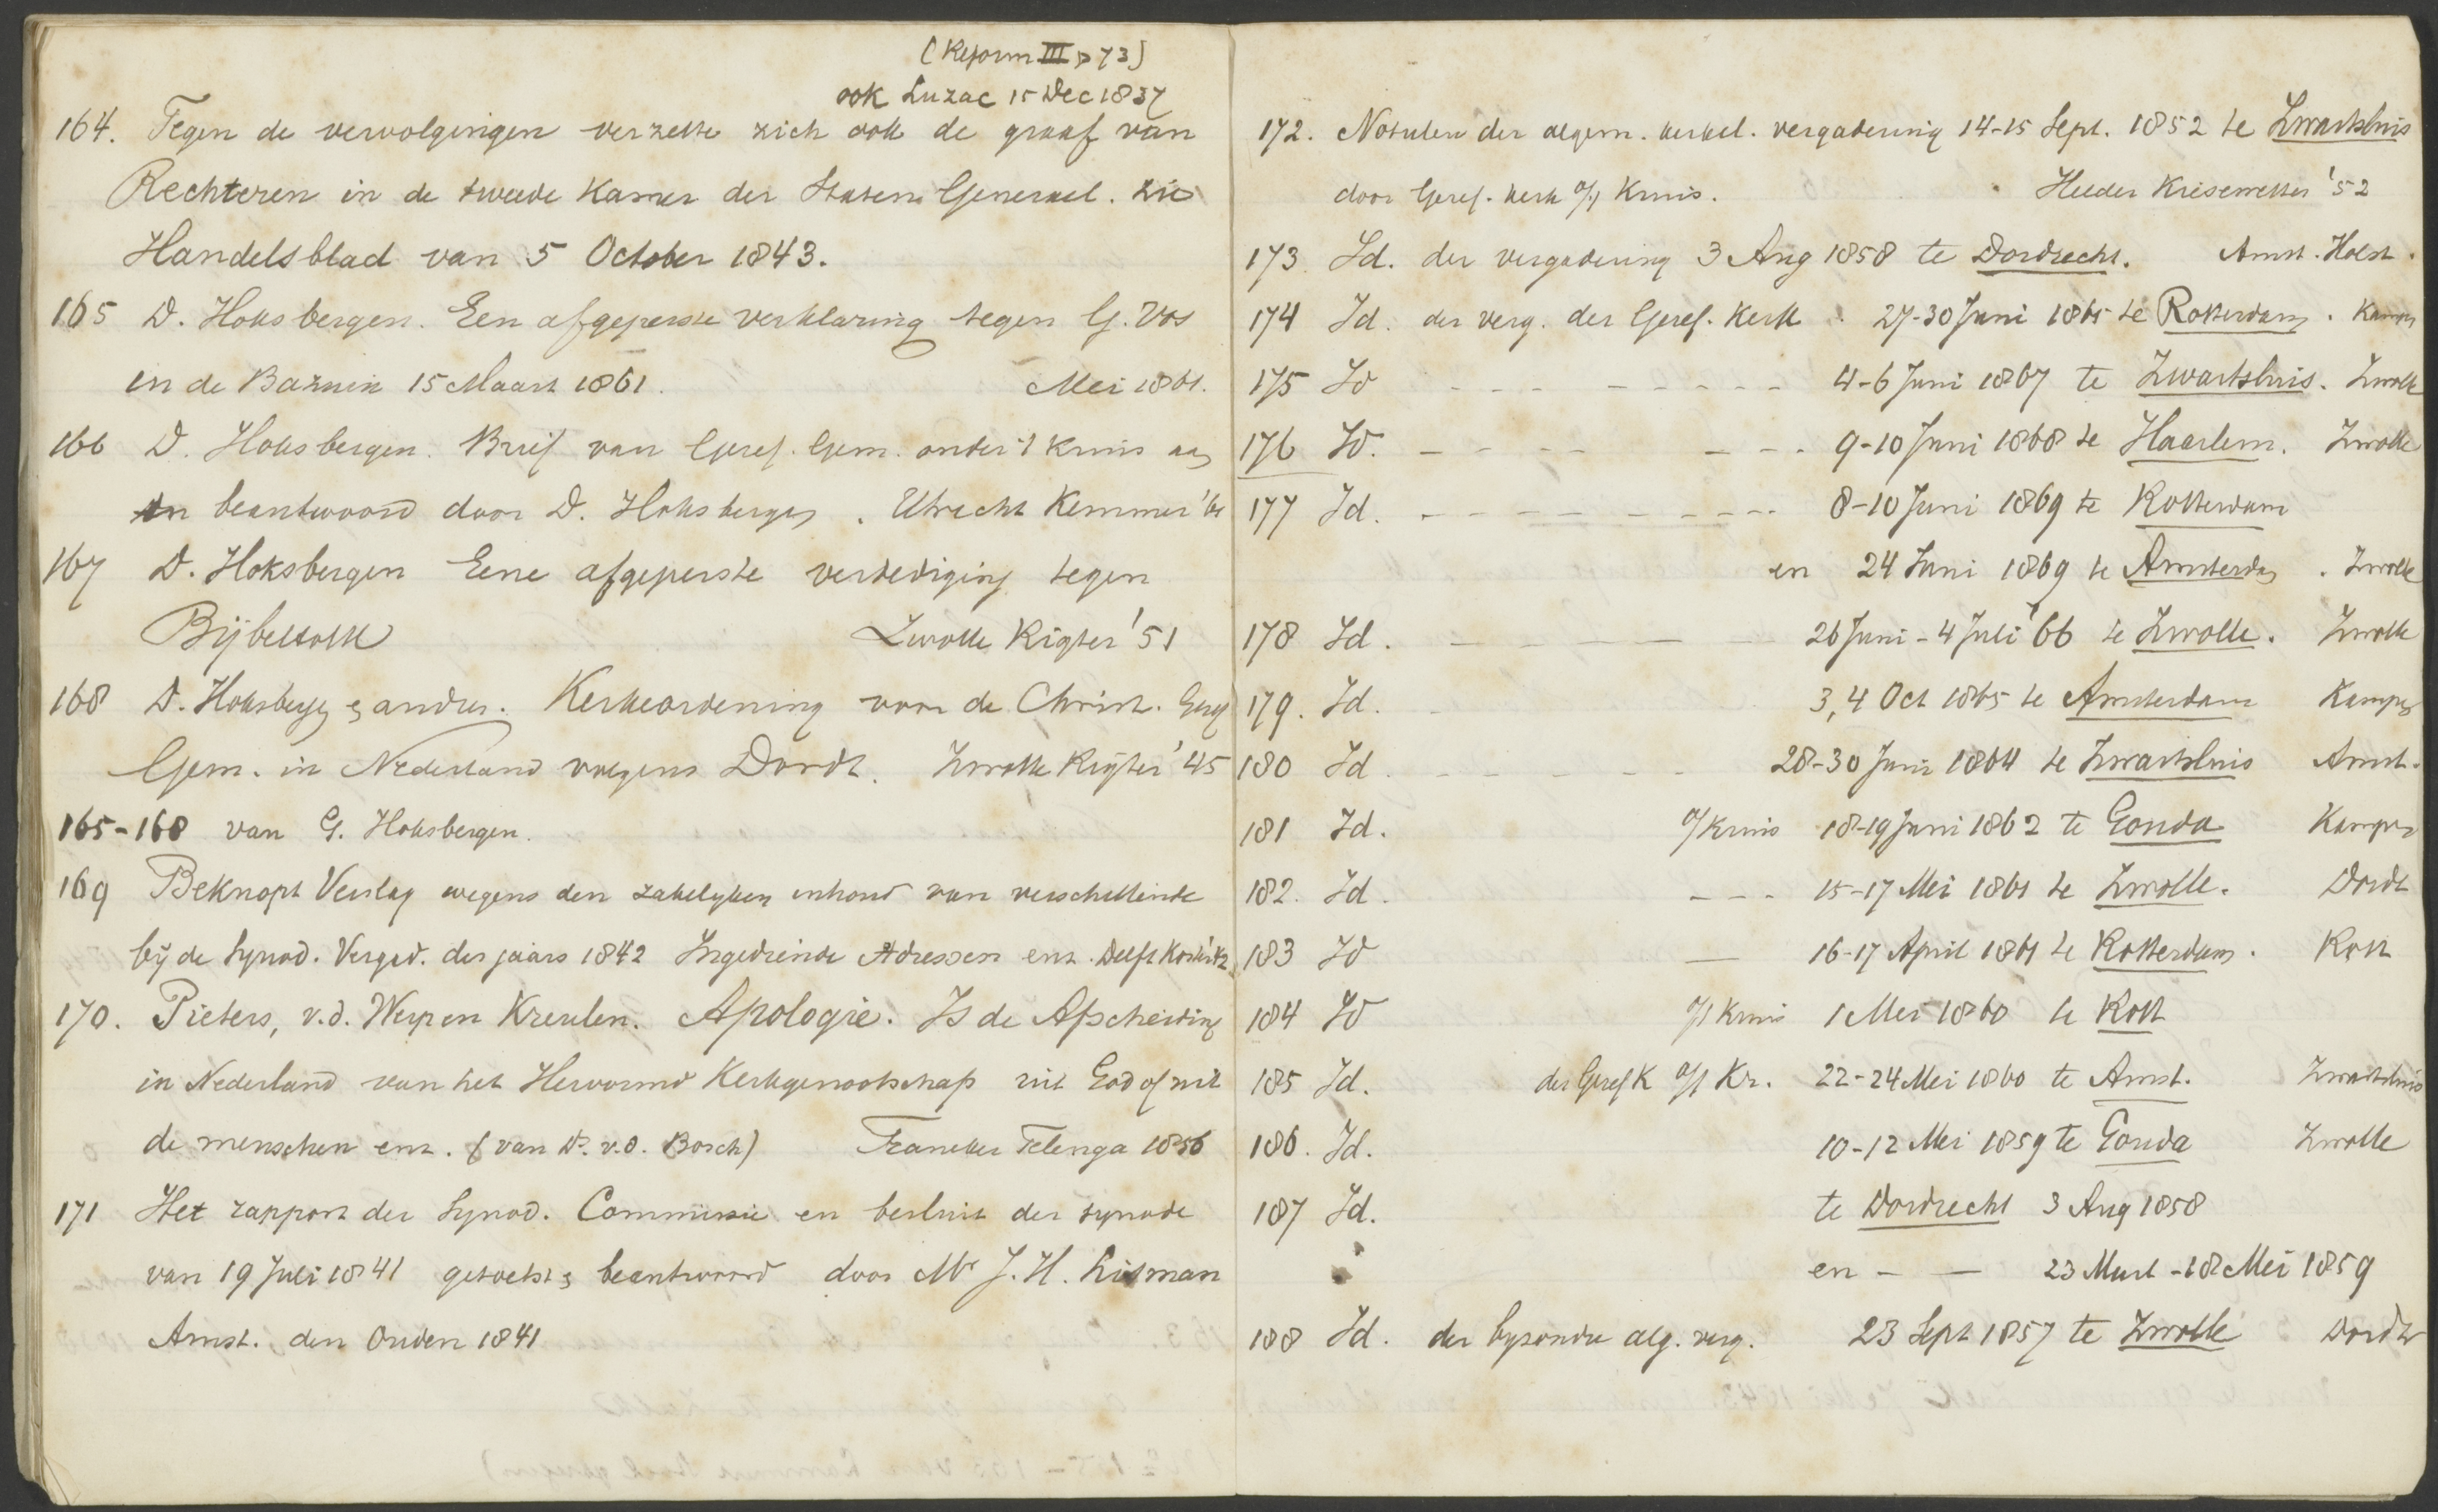 (Reform III p 73)
ook Luzac 15 Dec 1837
164. Tegen de vervolgingen verzette zich ook de graaf van
Rechteren in de tweede Kamer der Staten Generaal. Zie
Handelsblad van 5 October 1843.
165 D. Hoksbergen. Een afgeperste verklaring tegen G. Vos
in de Bazuin 15 Maart 1861. Mei 1861.
166 D. Hoksbergen. Brief van Geref. Gem. onder 't Kruis aan
en beantwoord door D. Hoksbergen. Utrecht Kemmer
167 D. Hoksbergen Eene afgeperste verdediging tegen
Bijbeltolk Zwolle Rigter '51
168 D. Hoksbergen & andres. Kerkeordening voor de Christ. Geref
Gem. in Nederland volgens Dordt. Zwolle Rigter '45
165-168 van G. Hoksbergen.
169 Beknopt Verslag wegens den zakelyken inhoud van verschillende
bij de Synod. Vergad. des jaars 1842 Ingediende Adressen enz. Delft
170. Pieters, v.d. Werp en Kreulen. Apologie. Is de Afscheiding
in Nederland van het Hervormd Kerkgenootschap uit God of uit
de menschen enz. (van Ds. v.d. Bosch) Franeker Telenga 1856
171 Het rapport der Synod. Commissie en besluit der synode
van 19 Juli 1841 getoetst & beantwoord door Mr J. H. Lisman
Amst. den Ouden 1841
172. Notulen der algem. kerkel. vergadering 14-15 Sept. 1852 te Zwartsluis
door Geref. kerk o/h Kruis. Helder '52
173 Id. der vergadering 3 Aug 1858 te Dordrecht. Amst. Holst.
174 Id. der verg. der Geref. Kerk. 27-30 Juni 1865 te Rotterdam. Kampen
175 Id - - - - - - - - 4-6 Juni 1867 te Zwartsluis. Zwolle
176 Id. - - - - - - - 9-10 Juni 1868 te Haarlem. Zwolle
177 Id. - - - - - - - - - 8-10 Juni 1869 te Rotterdam
en 24 Juni 1869 te Amsterdam. Zwolle
178 Id. - - - - - 26 Juni - 4 Juli '66 te Zwolle. Zwolle
179. Id. - 3, 4 Oct 1865 te Amsterdam Kampen
180 Id. - - - - - - 28-30 Juni 1864 te Zwartsluis Amst.
181 Id. o/Kruis 18-19 Juni 1862 te Gouda Kampen
182. Id. - - - 15-17 Mei 1861 te Zwolle. Dordt
183 Id — 16-17 April 1861 te Rotterdam. Rott
184 Id o/h Kruis 1 Mei 1860 te Rott
185 Id. der Geref K o/h Kr. 22-24 Mei 1860 te Amst. Zwartsluis
186. Id. 10-12 Mei 1859 te Gouda Zwolle
187 Id. te Dordrecht 3 Aug 1858
en - — 23 Maart - 18 Mei 1859
188 Id. der byzondre alg. verg. 23 Sept 1857 te Zwolle Dordt